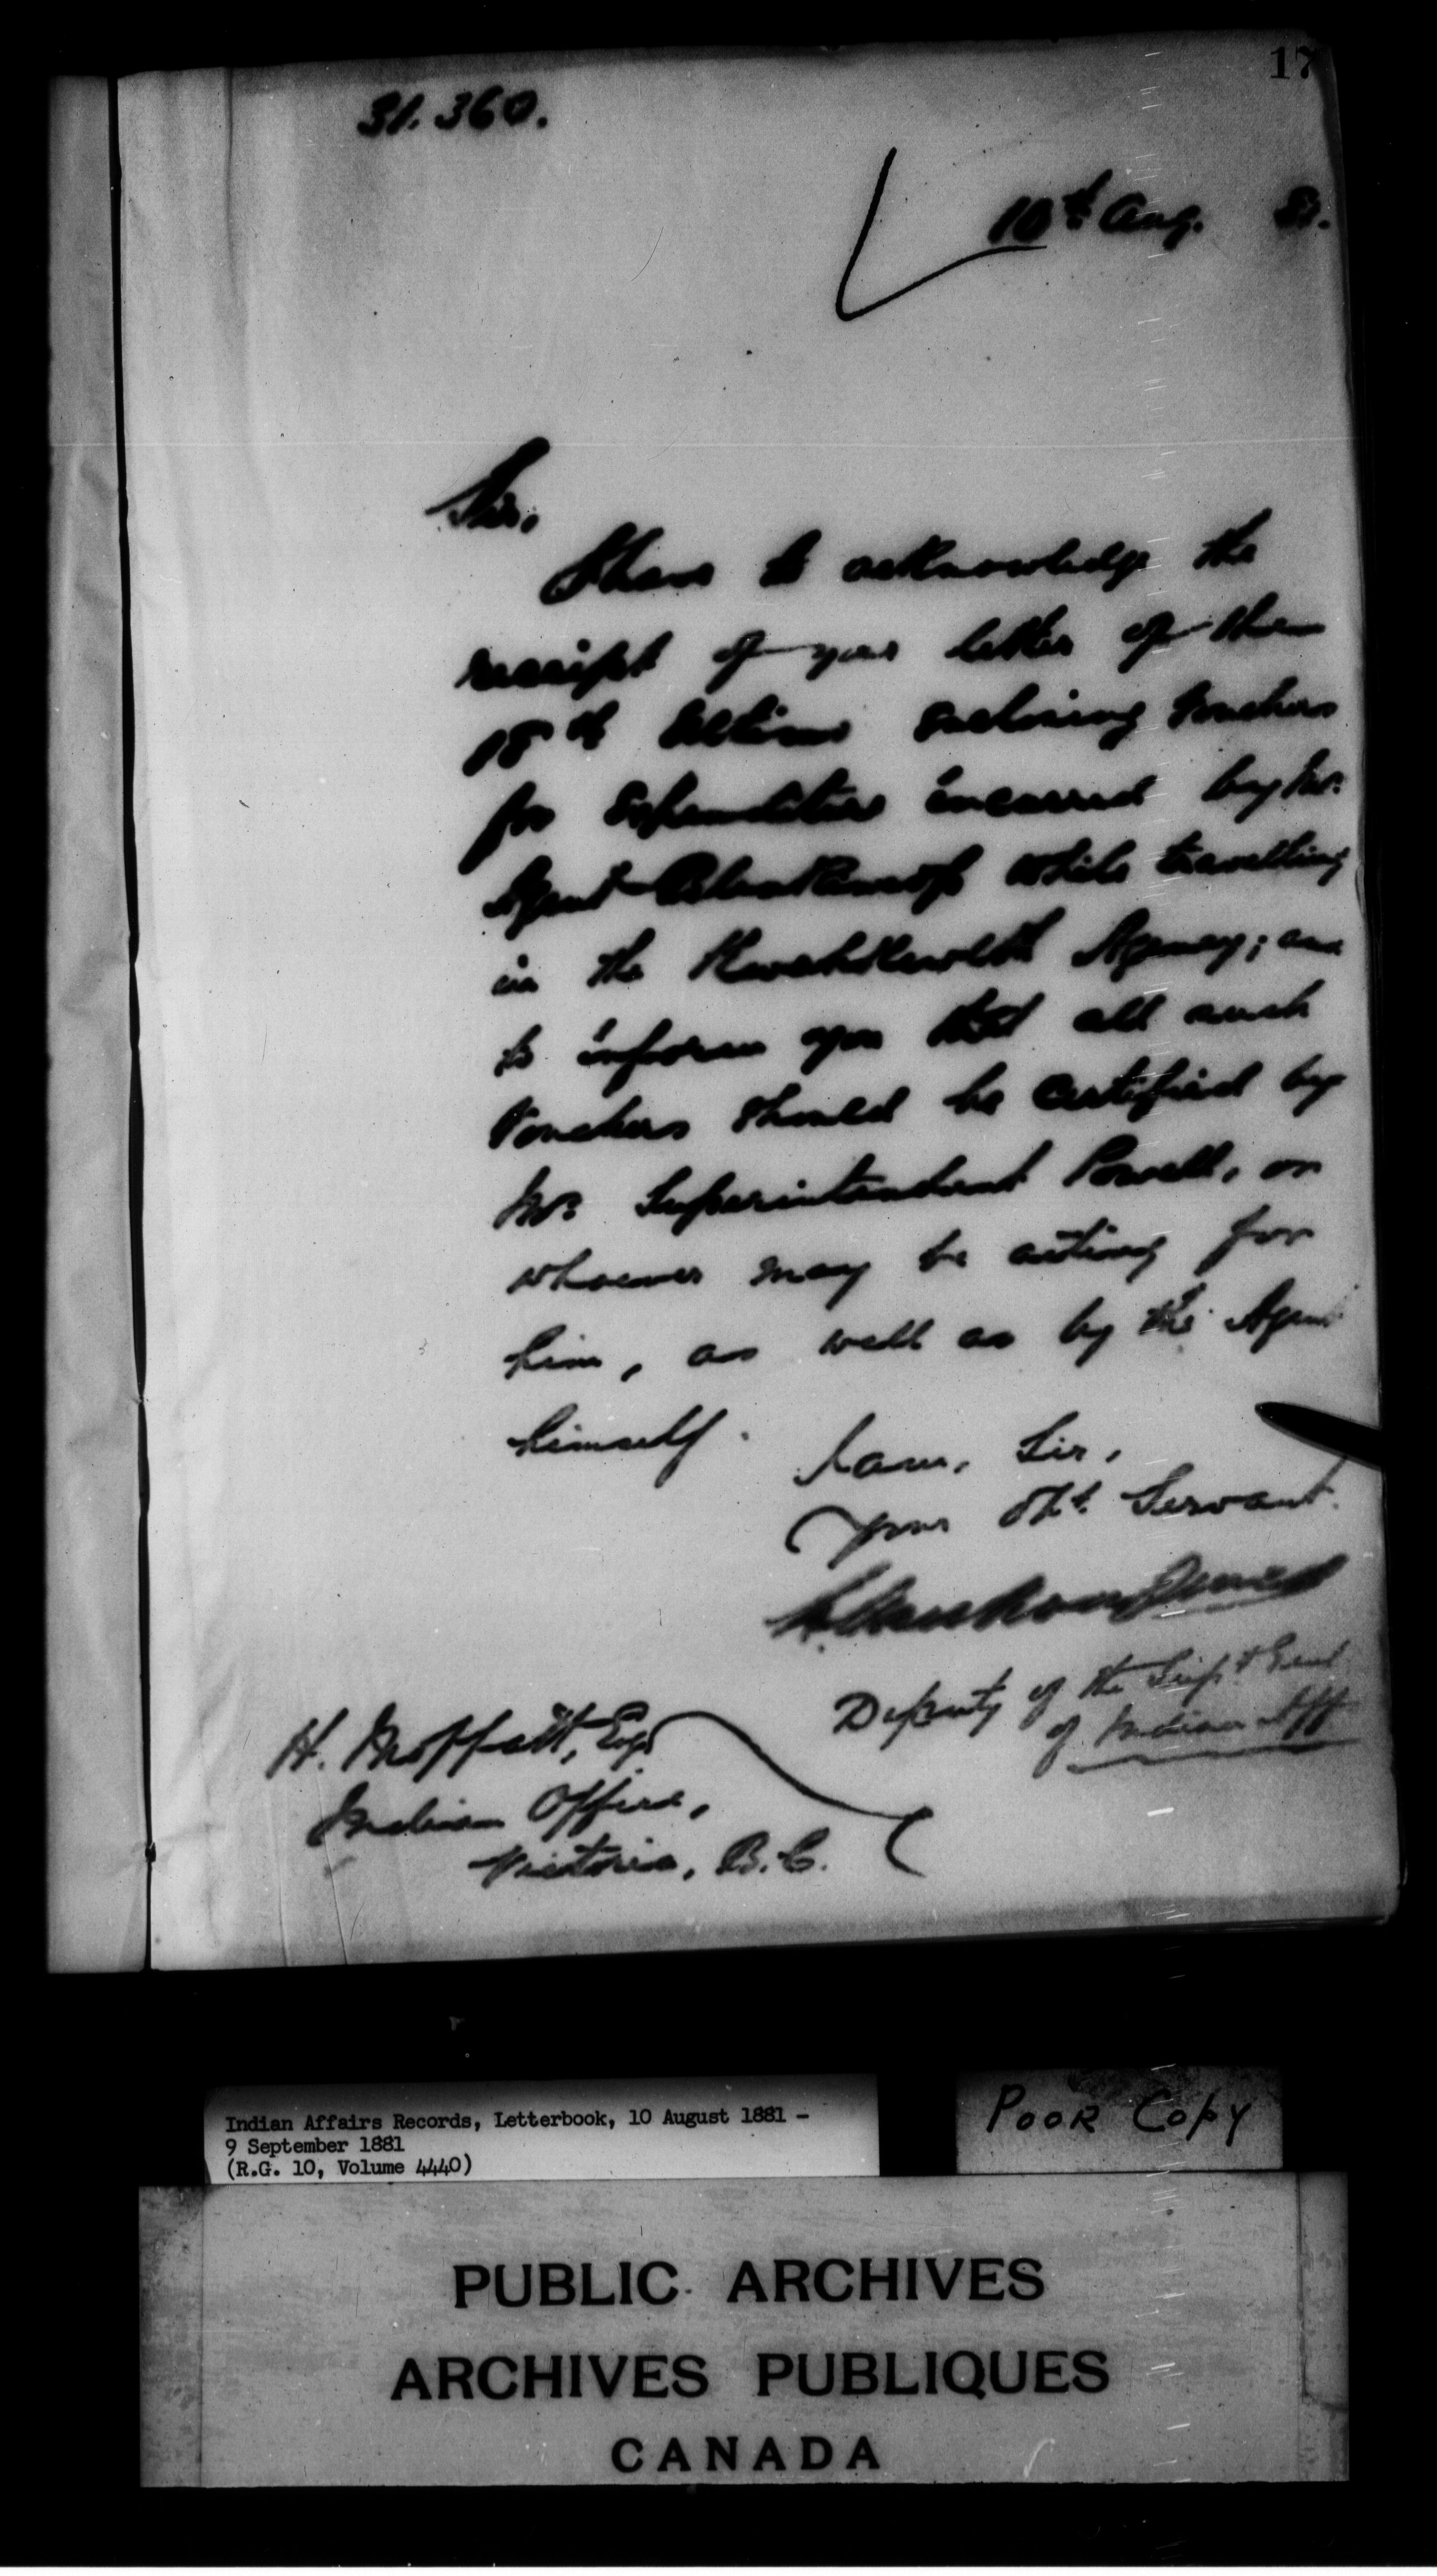 17
31.360.
10th Aug. 81.
Sir,
I have to acknowledge the
receipt of your letter of the
18th Ultimo enclosing Vouchers
for Expenditure incurred by Mr.
Agent Blenkinsop while travelling
in the Kwahkewlth Agency; and
to inform you that all such
Vouchers should be certified by
Mr. Superintendent Powell, or
whoever may be acting for
him, as well as by the Agent
himself.
I am, Sir,
Your Obt. Servant.
L. Vankoughnet
Deputy of the Supt. Genl
of Indian Aff
H. Moffatt, Esqr
Indian Office,
Victoria, B.C.
Indian Affairs Records, Letterbook, 10 August 1881 -
9 September 1881
(R.G. 10, Volume 4440)
POOR COPY
PUBLIC ARCHIVES
ARCHIVES PUBLIQUES
CANADA